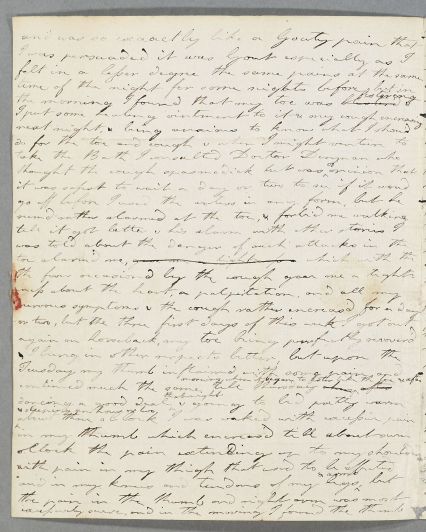 and was so exactly like a Gouty pain that
I was persuaded it was Gout especially as I
felt in a lesser degree the same pains at the same
time of the night for some nights before, but in
the morning I found that my toe was
I put some healing ointment to it & my cough increased
next night, & being anxious to know what I should
do for the toe and cough & when I might venture to
take the Bath I consulted Doctor he
thought the cough spasmodick but was of opinion that
it was safest to wait a day or two to see if it would
go off before I used the waters in any form, but he
seemed rather alarmed at the toe, & forbid me walking
till it got better & his alarm with other stories I
was told about the danger of such attacks in the
toe alarmed me, which with the
the fever occasioned by the cough gave me a tight-
ness about the heart, a palpitation, and all my
nervous symptoms & the cough rather increased for a day
or two, but the three first days of this week I got out
again on horseback, my toe being perfectly recovered
& being in other respects better, but upon the
Tuesday my thumb inflamed with some pain and
continued much the same till
a good deal upon going to bed pretty warm
o'clock I was waked with excessive pain
in my thumb which encreased till about four
o'clock the pain extending up to my shoulder
with pain in my thigh that used to be affected
and in my knees and tendons of my legs, but
the pain in the thumb and right arm was most
excessively severe, and in the morning I found the thumb